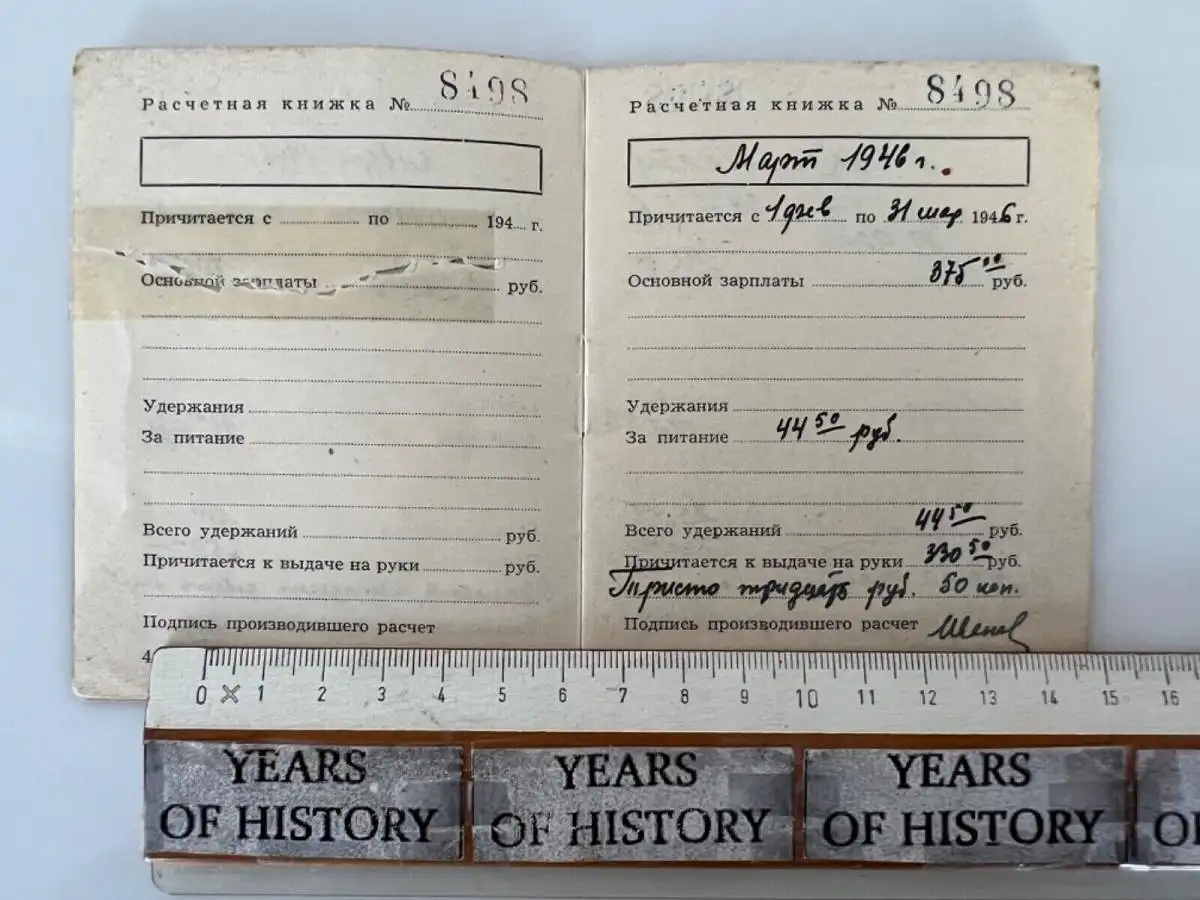 Расчетная книжка № 8498
Причитается с по 194 г.
Основной зарплаты руб.
Удержания
За питание
Всего удержаний руб.
Причитается к выдаче на руки руб.
Подпись производившего расчет
4
Расчетная книжка № 8498
Март 1946 г.
Причитается с 1 по 31 мар 1946 г.
Основной зарплаты 375 00 руб.
Удержания
За питание 44 50 руб.
Всего удержаний 44 50 руб.
Причитается к выдаче на руки 330 50 руб.
Триста тридцать руб. 50 коп.
Подпись производившего расчет
0 1 2 3 4 5 6 7 8 9 10 11 12 13 14 15 16
YEARS YEARS YEARS
OF HISTORY OF HISTORY OF HISTORY